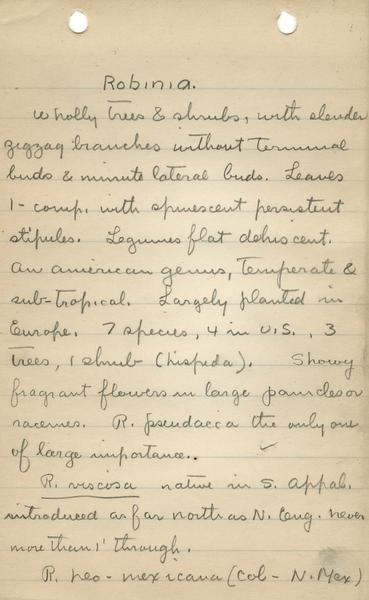 Robinia.
wholly trees & shrubs, with slender
zigzag branches without terminal
buds & minute lateral buds. Leaves
1-comp. with spinescent persistent
stipules. Legumes flat dehiscent.
An american genus, Temperate &
sub-tropical. Largely planted in
Europe. 7 species, 4 in U.S., 3
Trees, 1 shrub (hispida). Showy
fragrant flowers in large panicles or
racemes. R. pseudacia the only one
of large importance..
R. viscosa native in S. Appal.
introduced as far north as N. Eng. never
more than 1' through.
R. neo-mexicana (Col-N. Mex)